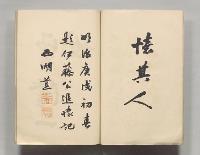 懐其人
明治庚戌初春
題伊藤公追懐記